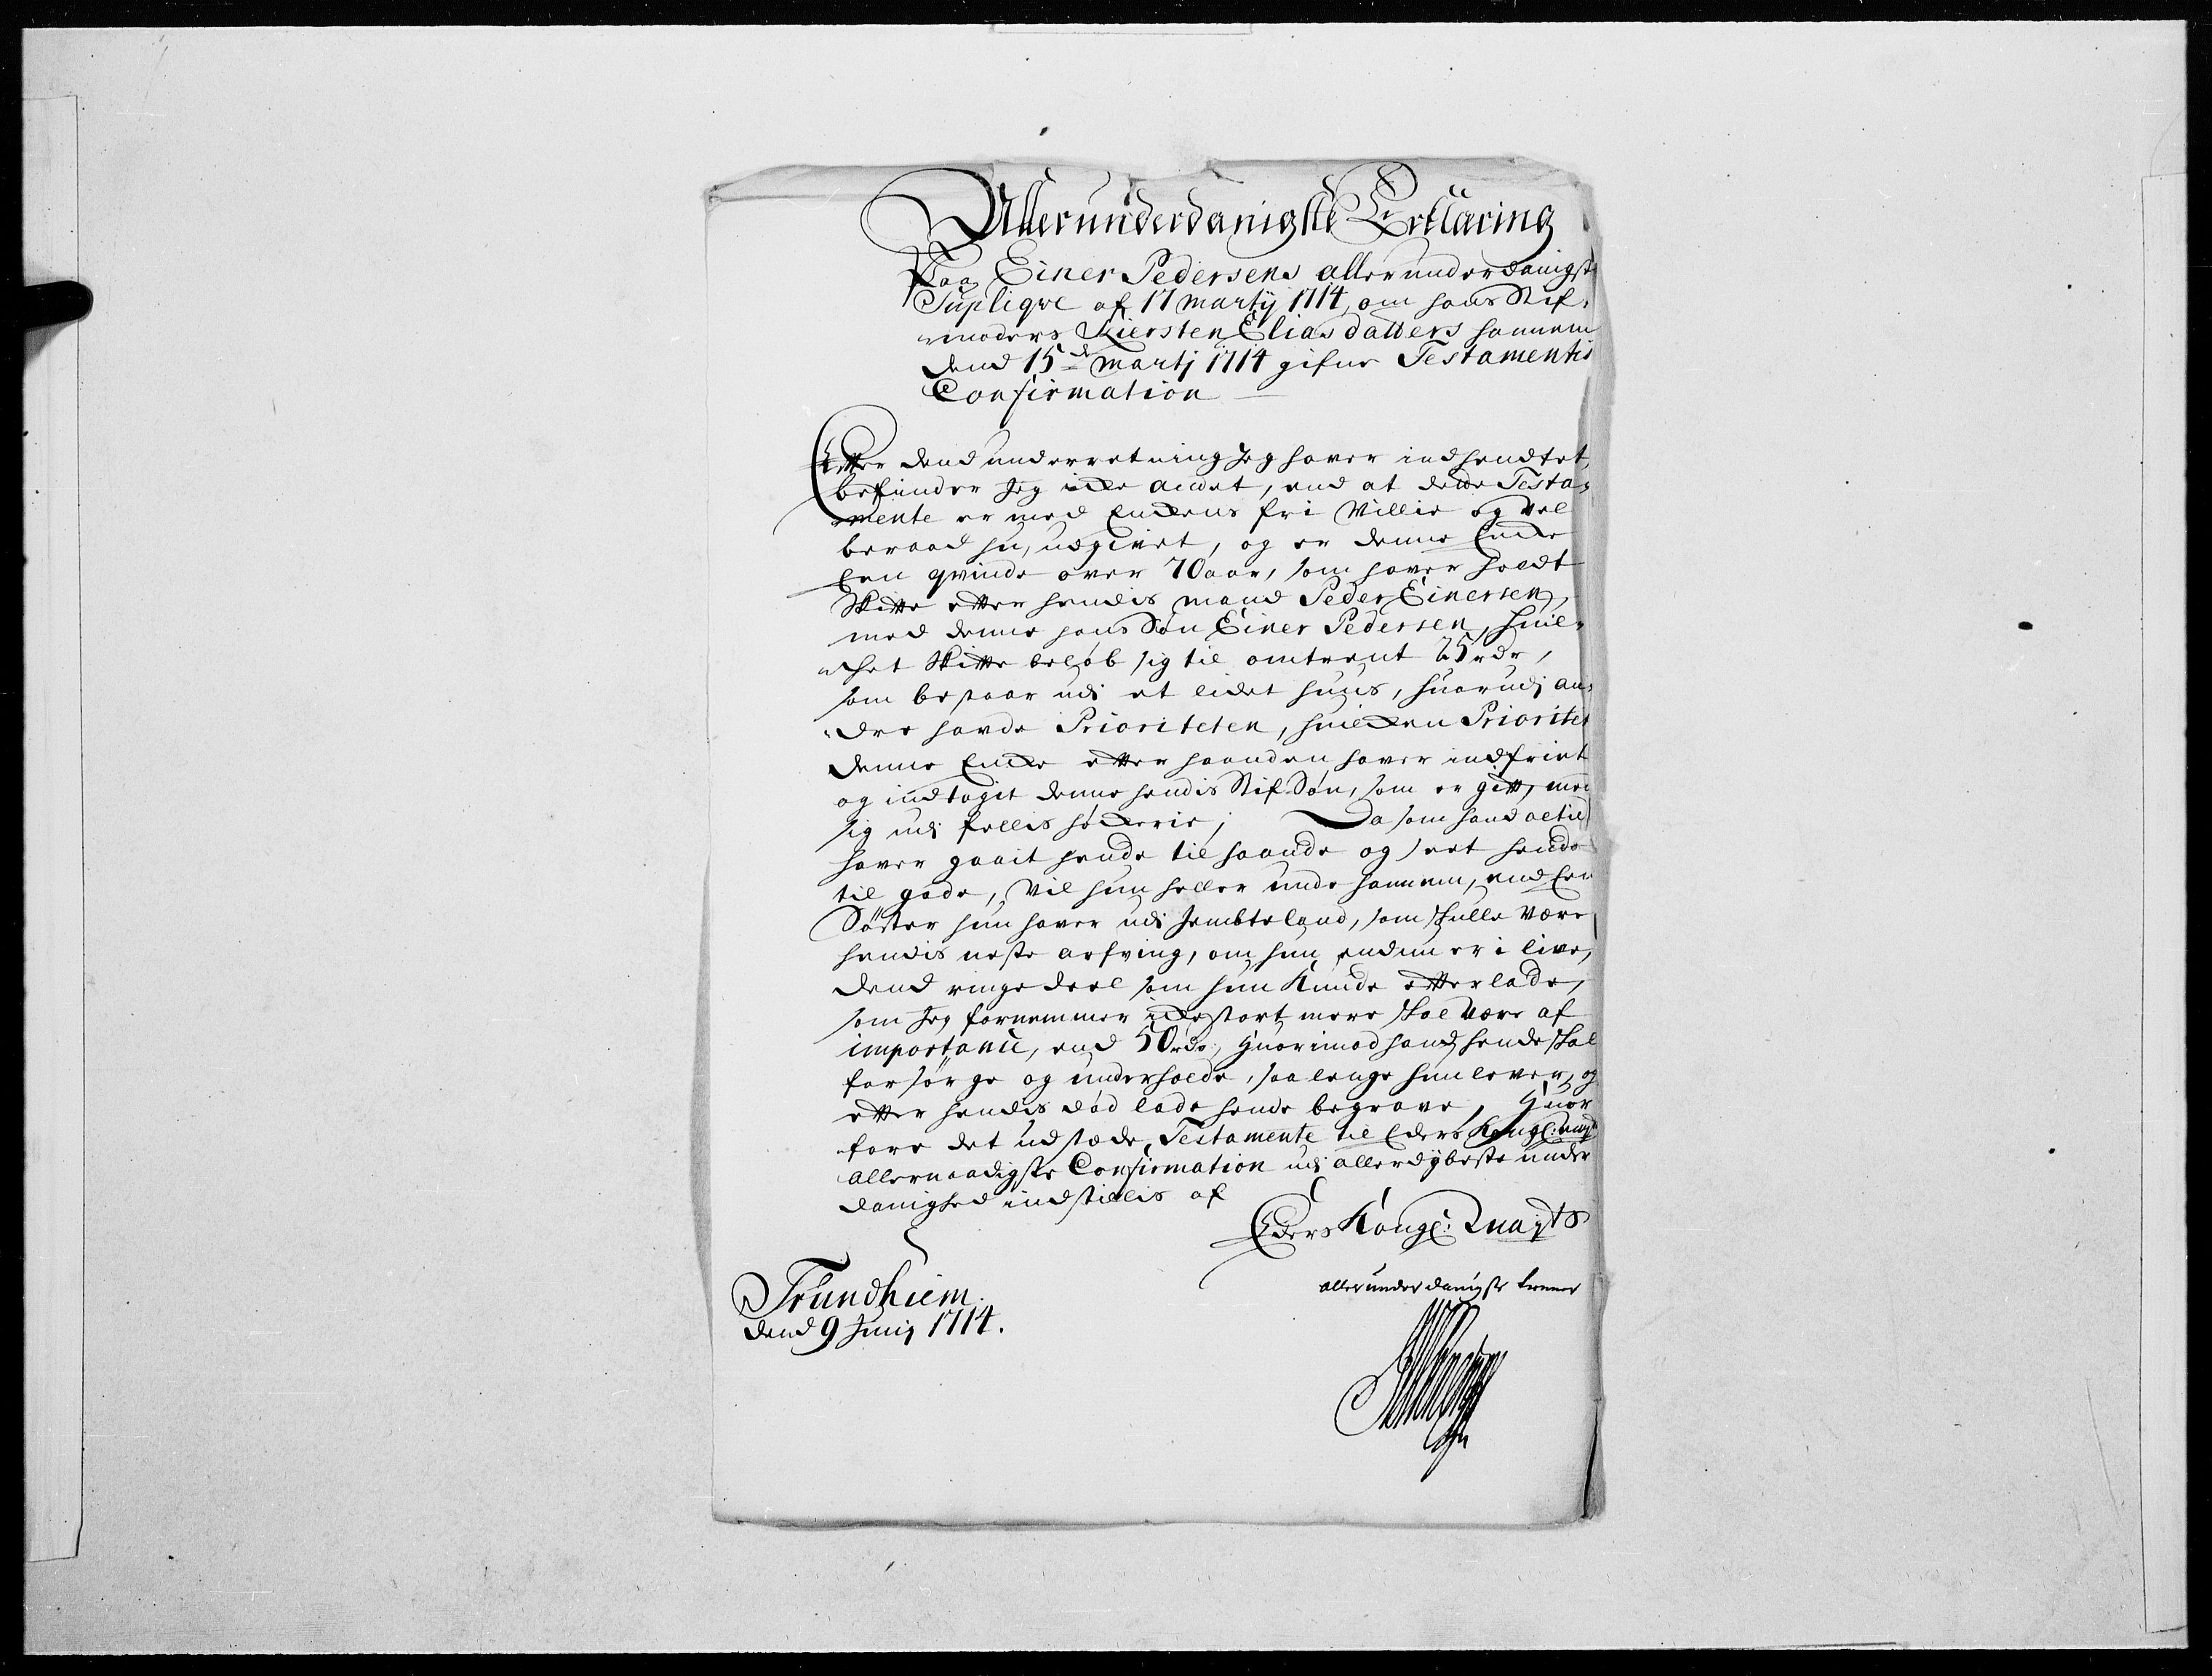 Allerunderdanigste Erklæring
Paa Einer Pedersens allerunderdanigste
Supliqve af 17 Martij 1714, om hans Stif-
moders Kiersten Elias datters hannem
dend 15de Martj 1714 gifne Testamentis
Confirmation
Effter dend underretning Jeg haver indhendtet,
befinder Jeg icke andet, end at dette Testa-
mente er med Enckens fri Villie og Vel
beraad hu, udgivet, og er denne Encke
Een qvinde over 70 aar, som haver holdt
Skiffte effter hendis mand Peder Einersen,
med denne hans Søn Einer Pedersen, huil-
chet Skiffte beløb sig til omtrent 25 rdr,
som bestaar udi et lidet huus, huorudj an-
dre havde Prioriteten, huilcken Prioritet
denne Encke effter haanden haver indfriet
og indtaget denne hendis Stif Søn, som er gifft, med
sig udi fellis høckerie; Da som hand altid
haver gaait hende til haande og seet hende
til gode, Vil hun heller unde hannem, end Een
Søster hun haver udi Jembteland, som skulle Være
hendis neste arfving, om hun endnu er i live,
dend ringe deel som hun Kunde effterlade,
som Jeg fornemmer icke stort mere skal Være af
importance, end 50 rdr, Huorimod hand hende skal
forsørge og underholde, saa lenge hun lever, og
effter hendis død lade hende begrave, Huor
fore det udstæde Testamente til Eders Kongl: Mayts
allernaadigste Confirmation udi allerdÿbeste under
danighed indstillis af
Eders Kongl: Mayts
allerunderdanigste tienner
Trundhiem.
dend 9 Junij 1714.